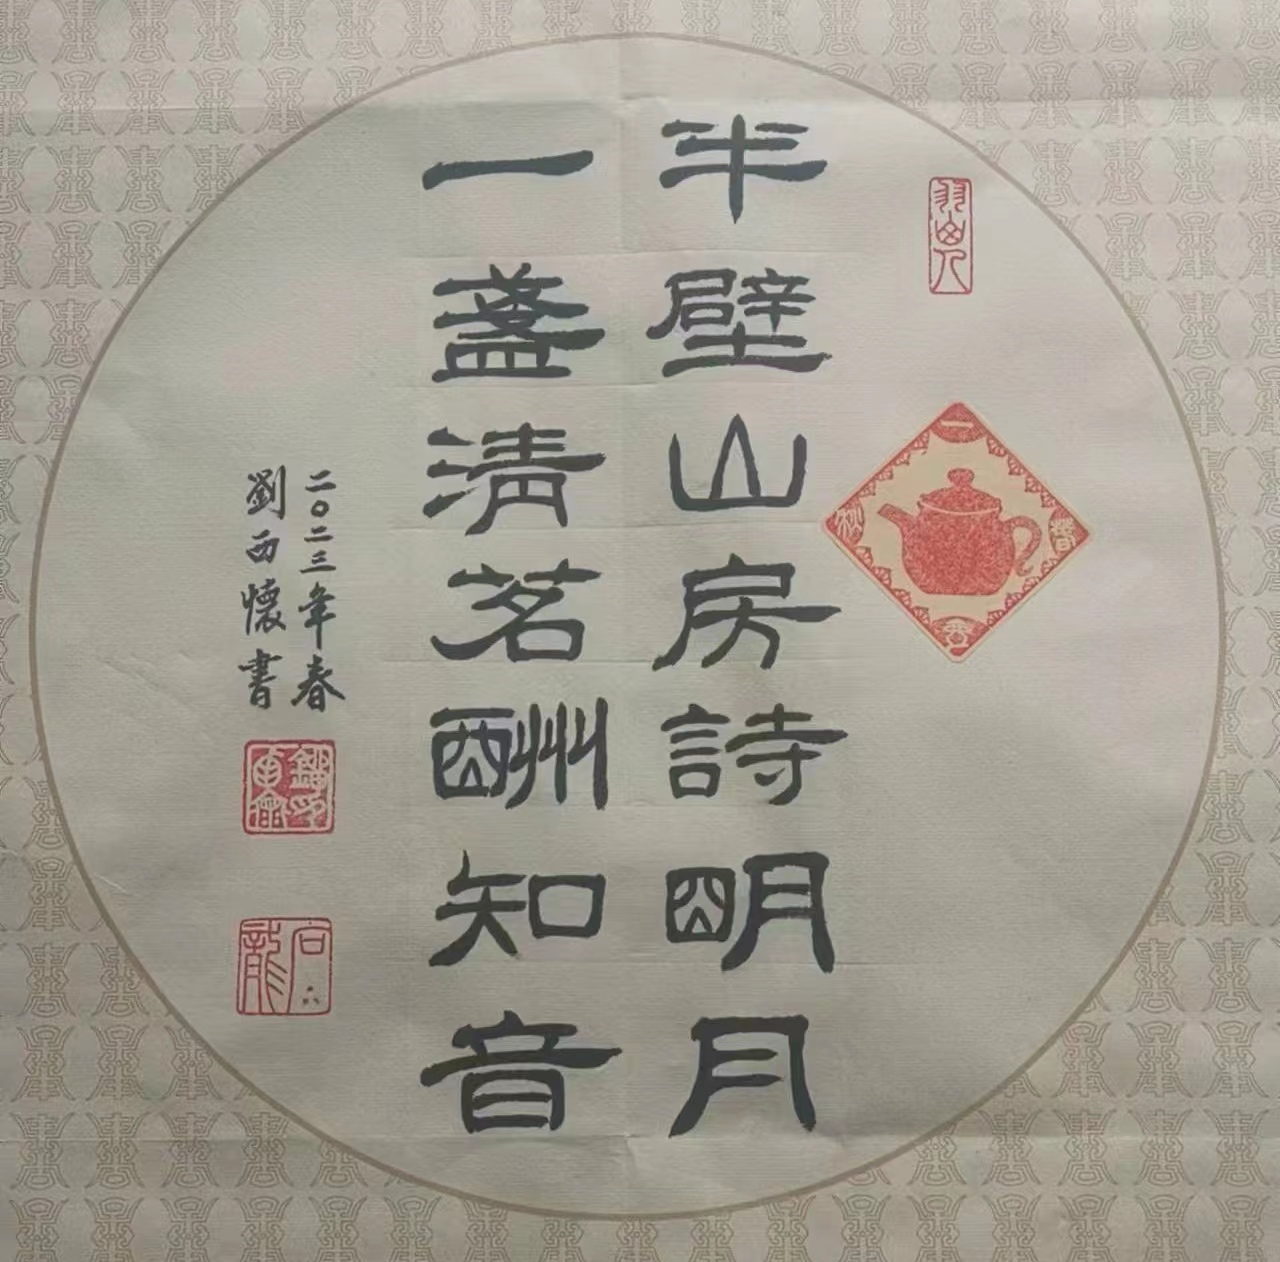 半壁山房詩明月
一盞清茗酬知音
二〇二三年春
劉西懷書